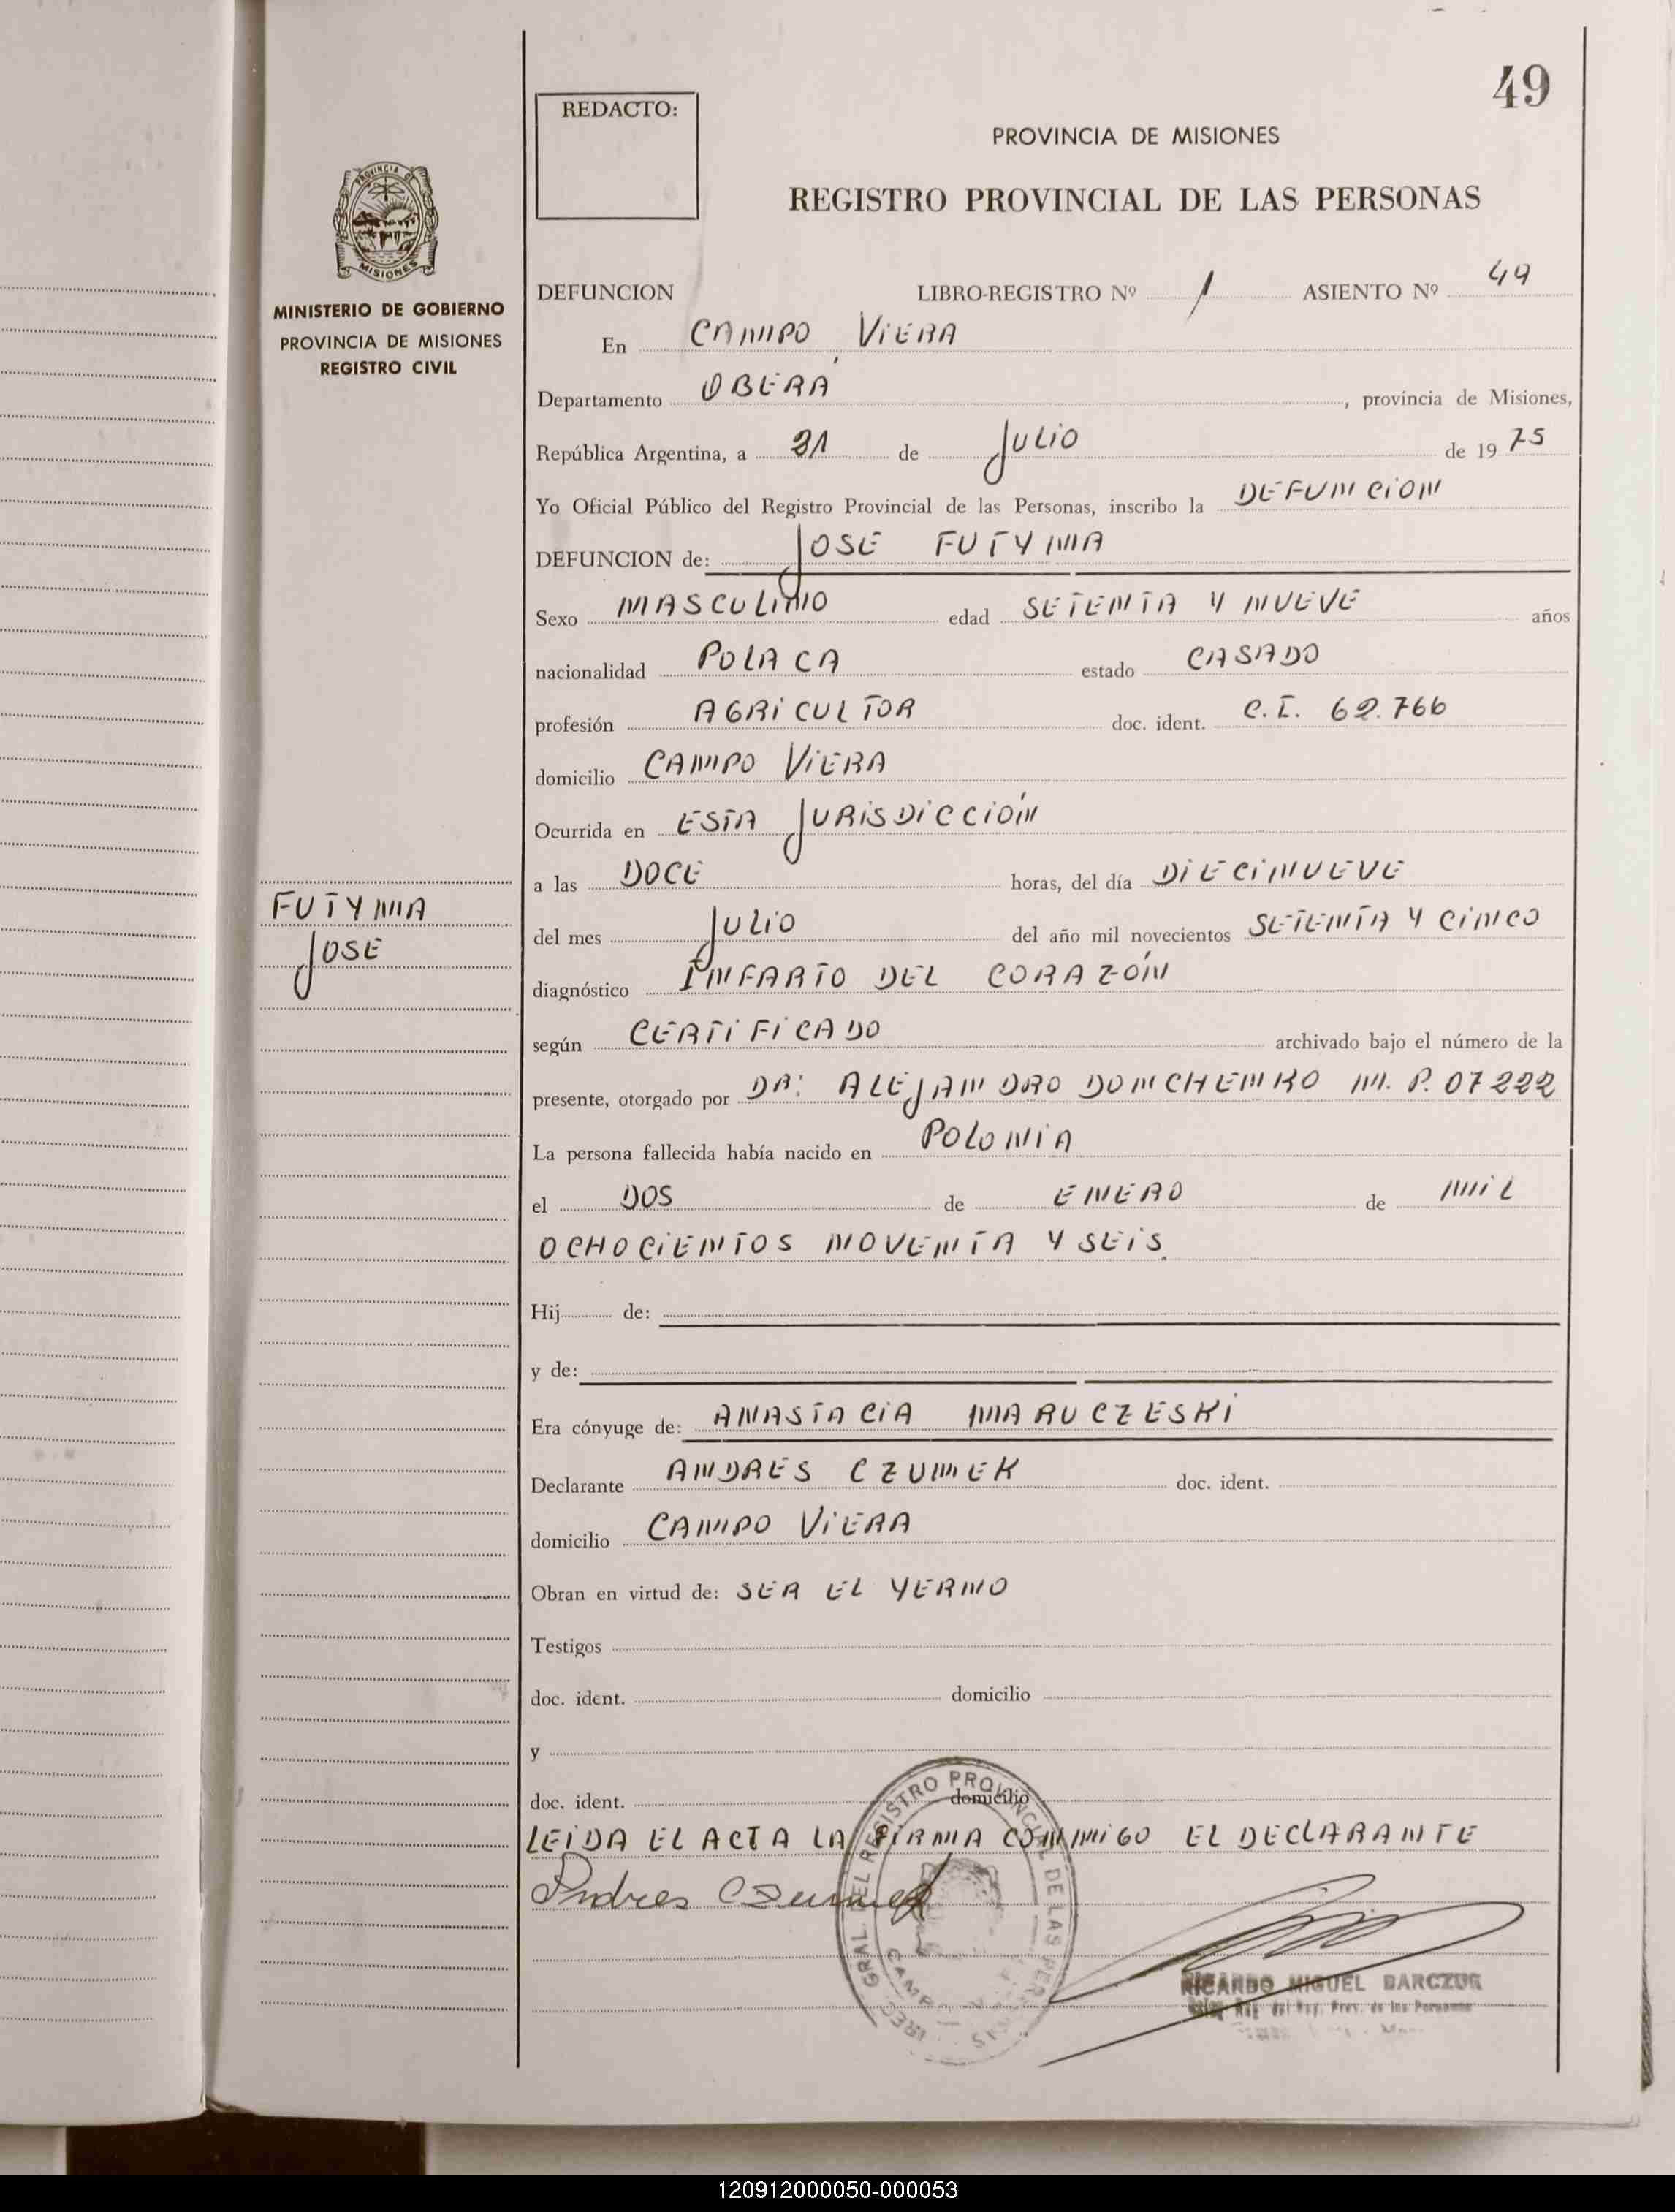 49
REDACTO:
PROVINCIA DE MISIONES
REGISTRO PROVINCIAL DE LAS PERSONAS
PROVINCIA DE
MISIONES
MINISTERIO DE GOBIERNO
PROVINCIA DE MISIONES
REGISTRO CIVIL
DEFUNCION LIBRO-REGISTRO Nº 1 ASIENTO Nº 49
En CAMPO VIERA
Departamento OBERÁ, provincia de Misiones,
República Argentina, a 31 de JULIO de 19 75
Yo Oficial Público del Registro Provincial de las Personas, inscribo la DEFUNCION
DEFUNCION de: JOSE FUTYMA
Sexo MASCULINO edad SETENTA Y NUEVE años
nacionalidad POLACA estado CASADO
profesión AGRICULTOR doc. ident. C.I. 62.766
domicilio CAMPO VIERA
Ocurrida en ESTA JURISDICCIÓN
a las DOCE horas, del día DIECINUEVE
FUTYMA
JOSE
del mes JULIO del año mil novecientos SETENTA Y CINCO
diagnóstico INFARTO DEL CORAZÓN
según CERTIFICADO archivado bajo el número de la
presente, otorgado por DR: ALEJANDRO DOMCHENKO M.P. 07222
La persona fallecida había nacido en POLONIA
el DOS de ENERO de MIL
OCHOCIENTOS NOVENTA Y SEIS.
Hij de:
y de:
Era cónyuge de: ANASTACIA MARUCZESKI
Declarante ANDRES CZUMEK doc. ident.
domicilio CAMPO VIERA
Obran en virtud de: SER EL YERNO
Testigos
doc. ident. domicilio
y
doc. ident. domicilio
LEIDA EL ACTA LA FIRMA CONMIGO EL DECLARANTE
Andres Czumek
DEL REGISTRO PROVINCIAL DE LAS PERSONAS
RICARDO MIGUEL BARCZUK
del Reg. Prov. de las Personas
120912000050-000053